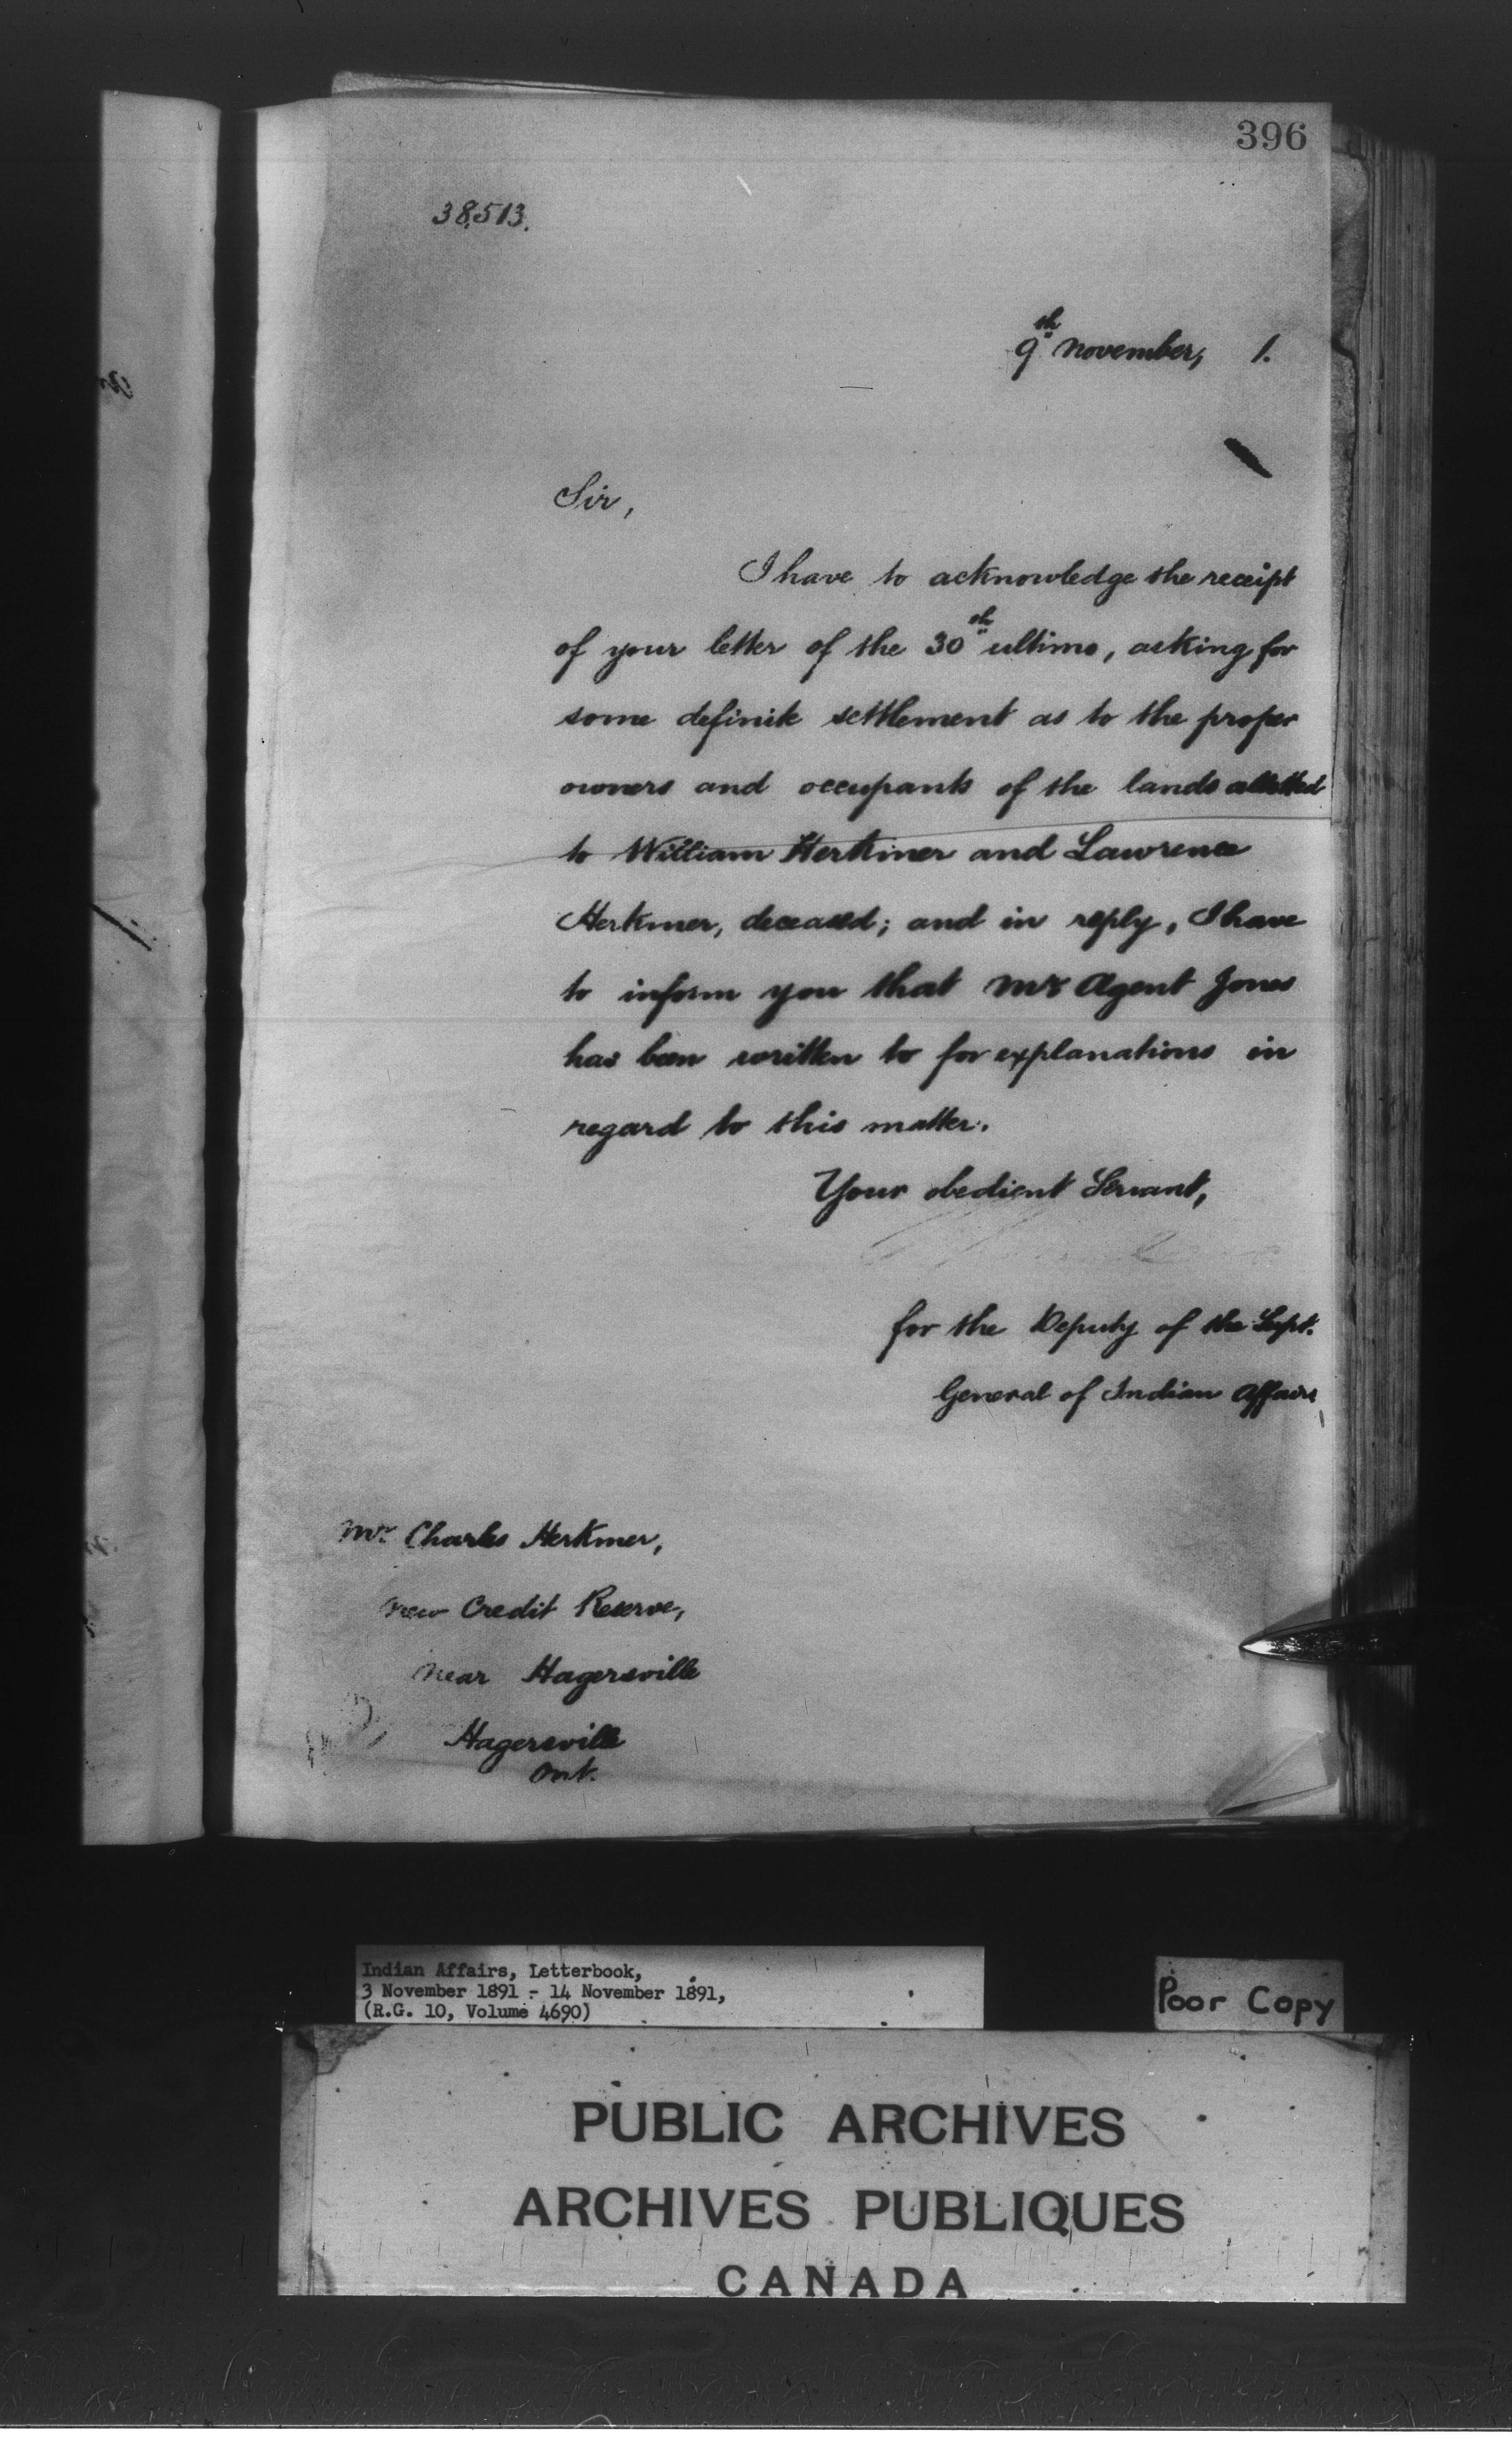 396
38,513.
9th November, 1.
Sir,
I have to acknowledge the receipt
of your letter of the 30th ultimo, asking for
some definite settlement as to the proper
owners and occupants of the lands allotted
to William Herkmer and Lawrence
Herkmer, deceased; and in reply, I have
to inform you that Mr Agent Jones
has been written to for explanations in
regard to this matter.
Your obedient Servant,
for the Deputy of the Supt.
General of Indian Affairs
Mr. Charles Herkmer,
New Credit Reserve,
Near Hagersville
Hagersville
Ont.
Indian Affairs, Letterbook,
3 November 1891 - 14 November 1891,
(R.G. 10, Volume 4690)
Poor Copy
PUBLIC ARCHIVES
ARCHIVES PUBLIQUES
CANADA